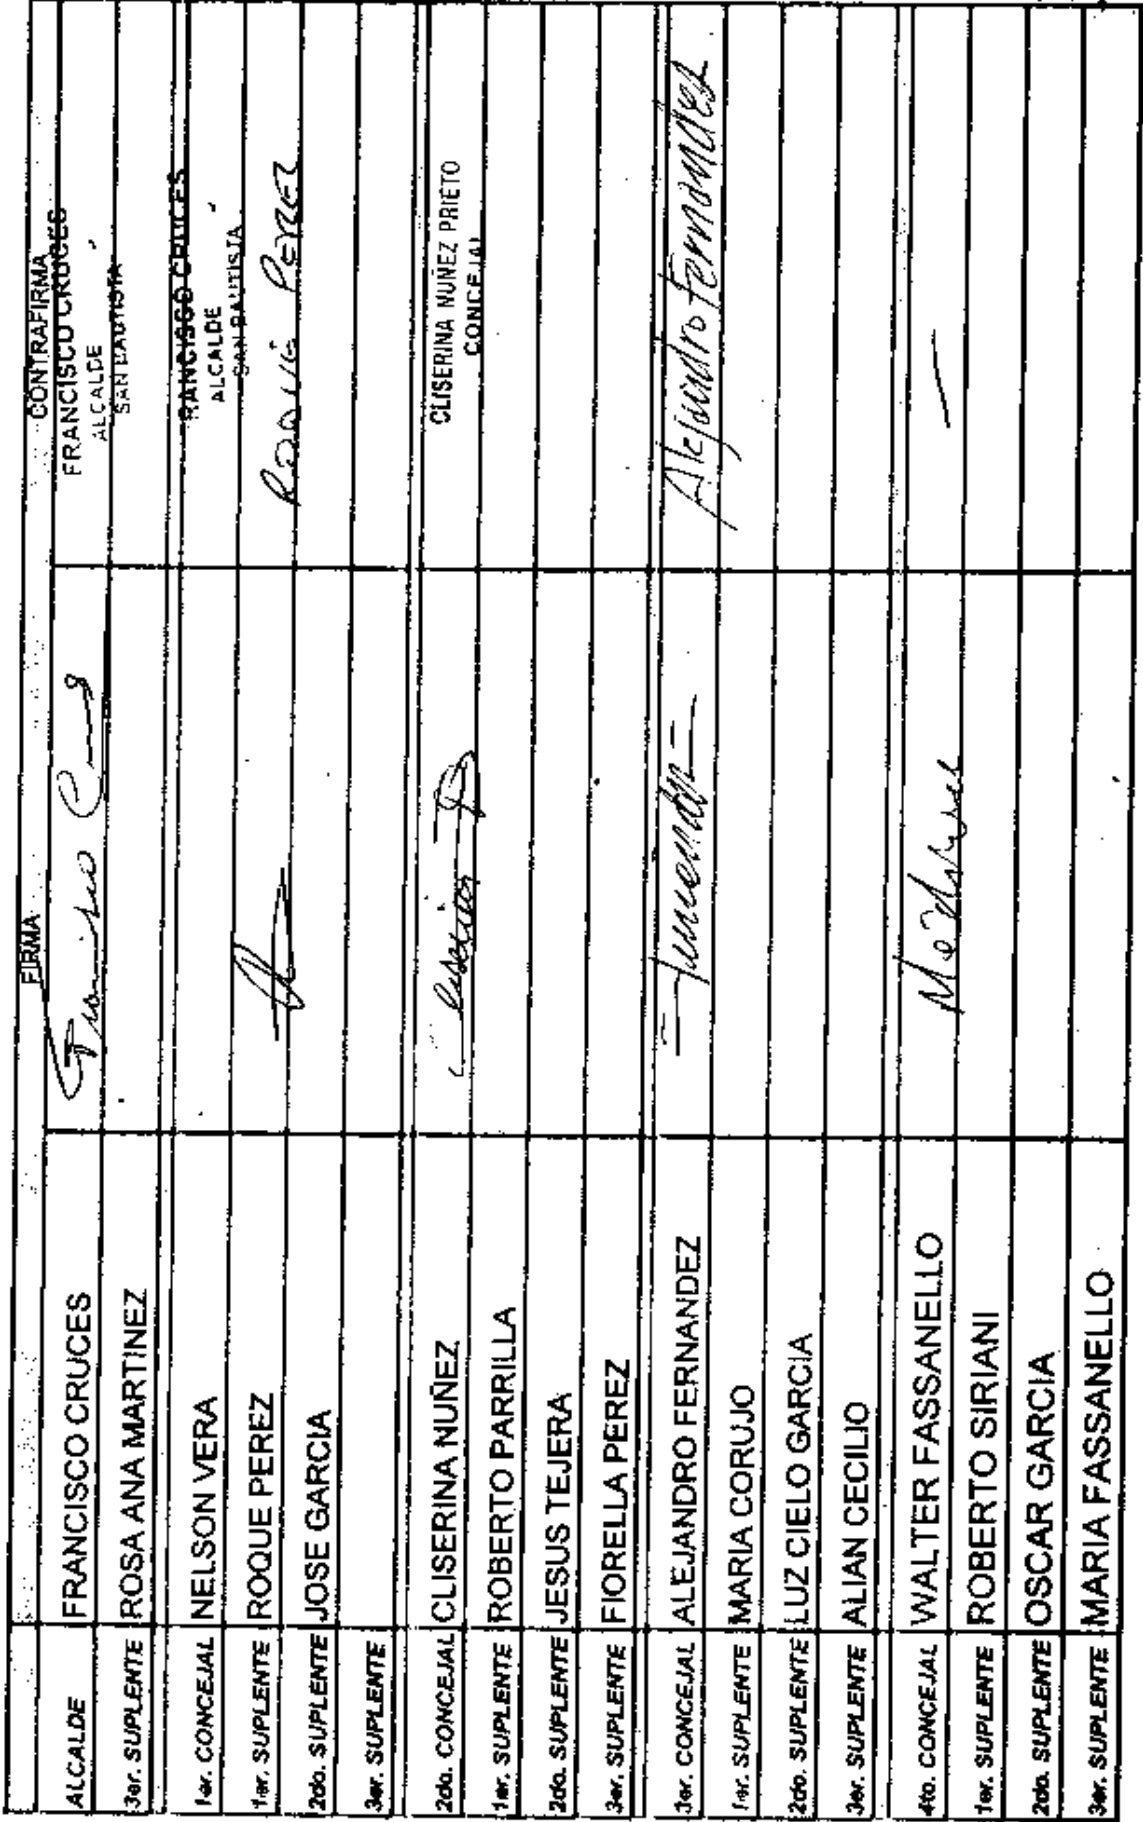 FIRMA CONTRAFIRMA
ALCALDE FRANCISCO CRUCES FRANCISCO CRUCES
ALCALDE
SAN BAUTISTA
3er. SUPLENTE ROSA ANA MARTINEZ
1er. CONCEJAL NELSON VERA RANCISCO CRUCES
ALCALDE
SAN BAUTISTA
1er. SUPLENTE ROQUE PEREZ ROQUE PEREZ
2do. SUPLENTE JOSE GARCIA
3er. SUPLENTE
2do. CONCEJAL CLISERINA NUÑEZ CLISERINA NUÑEZ PRIETO
CONCEJAL
1er. SUPLENTE ROBERTO PARRILLA
2do. SUPLENTE JESUS TEJERA
3er. SUPLENTE FIORELLA PEREZ
3er. CONCEJAL ALEJANDRO FERNANDEZ Alejandro Fernandez
1er. SUPLENTE MARIA CORUJO
2do. SUPLENTE LUZ CIELO GARCIA
3er. SUPLENTE ALIAN CECILIO
4to. CONCEJAL WALTER FASSANELLO
1er. SUPLENTE ROBERTO SIRIANI
2do. SUPLENTE OSCAR GARCIA
3er. SUPLENTE MARIA FASSANELLO